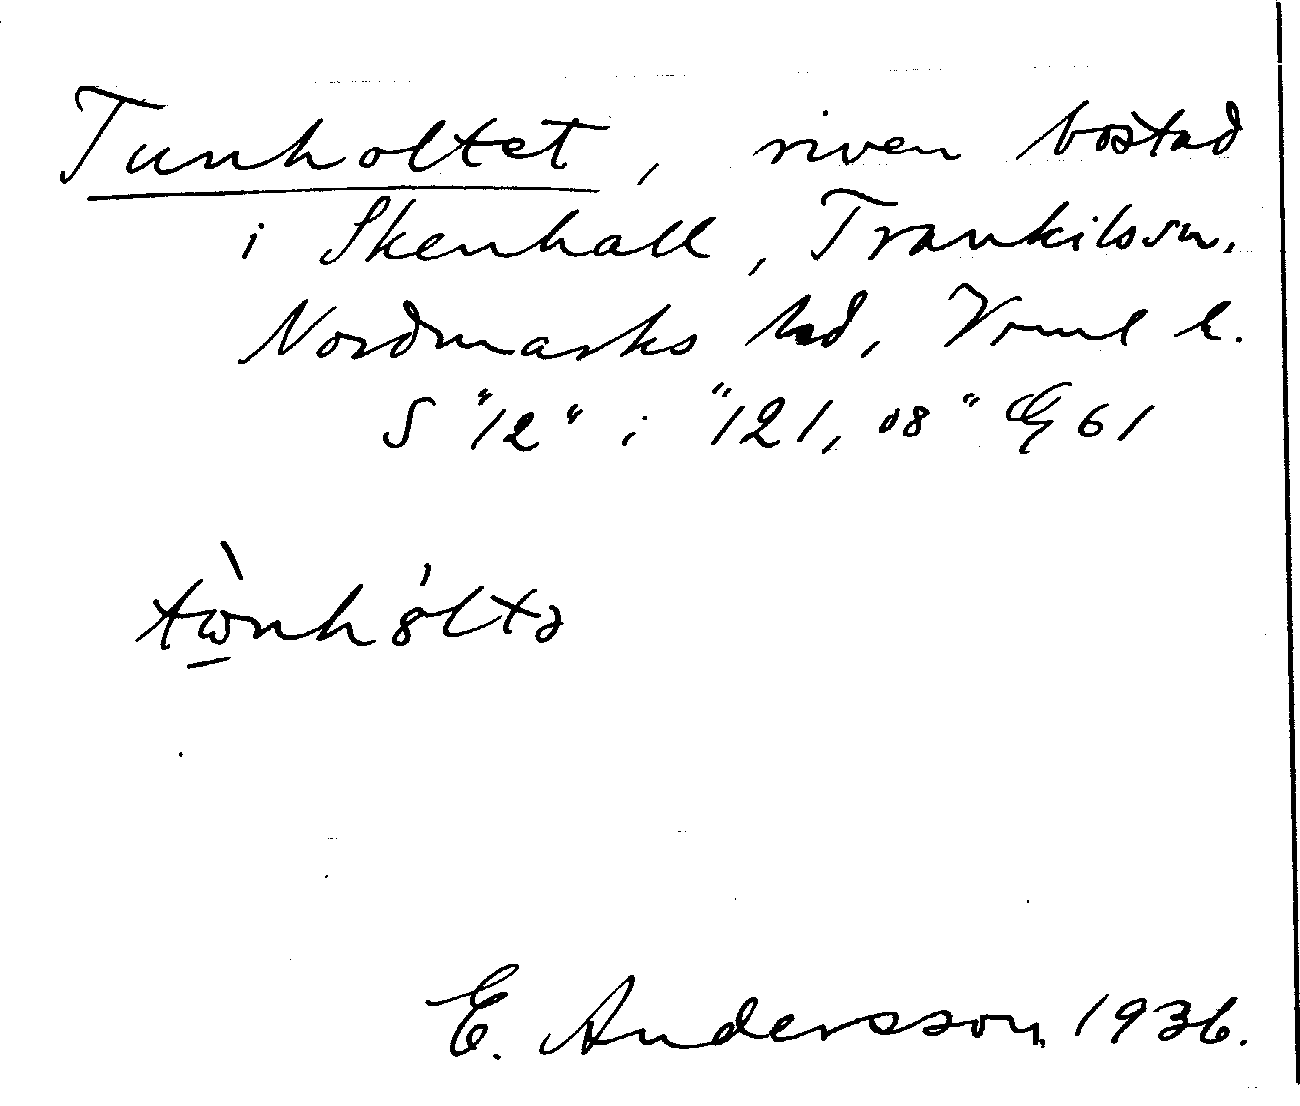 Tunholtet, riven bostad
i Skenhall, Trankilssn.
Nordmarks hd, Vrml l.
S "12" i "121,08" EG 61
tωnhòltə
E. Andersson, 1936.